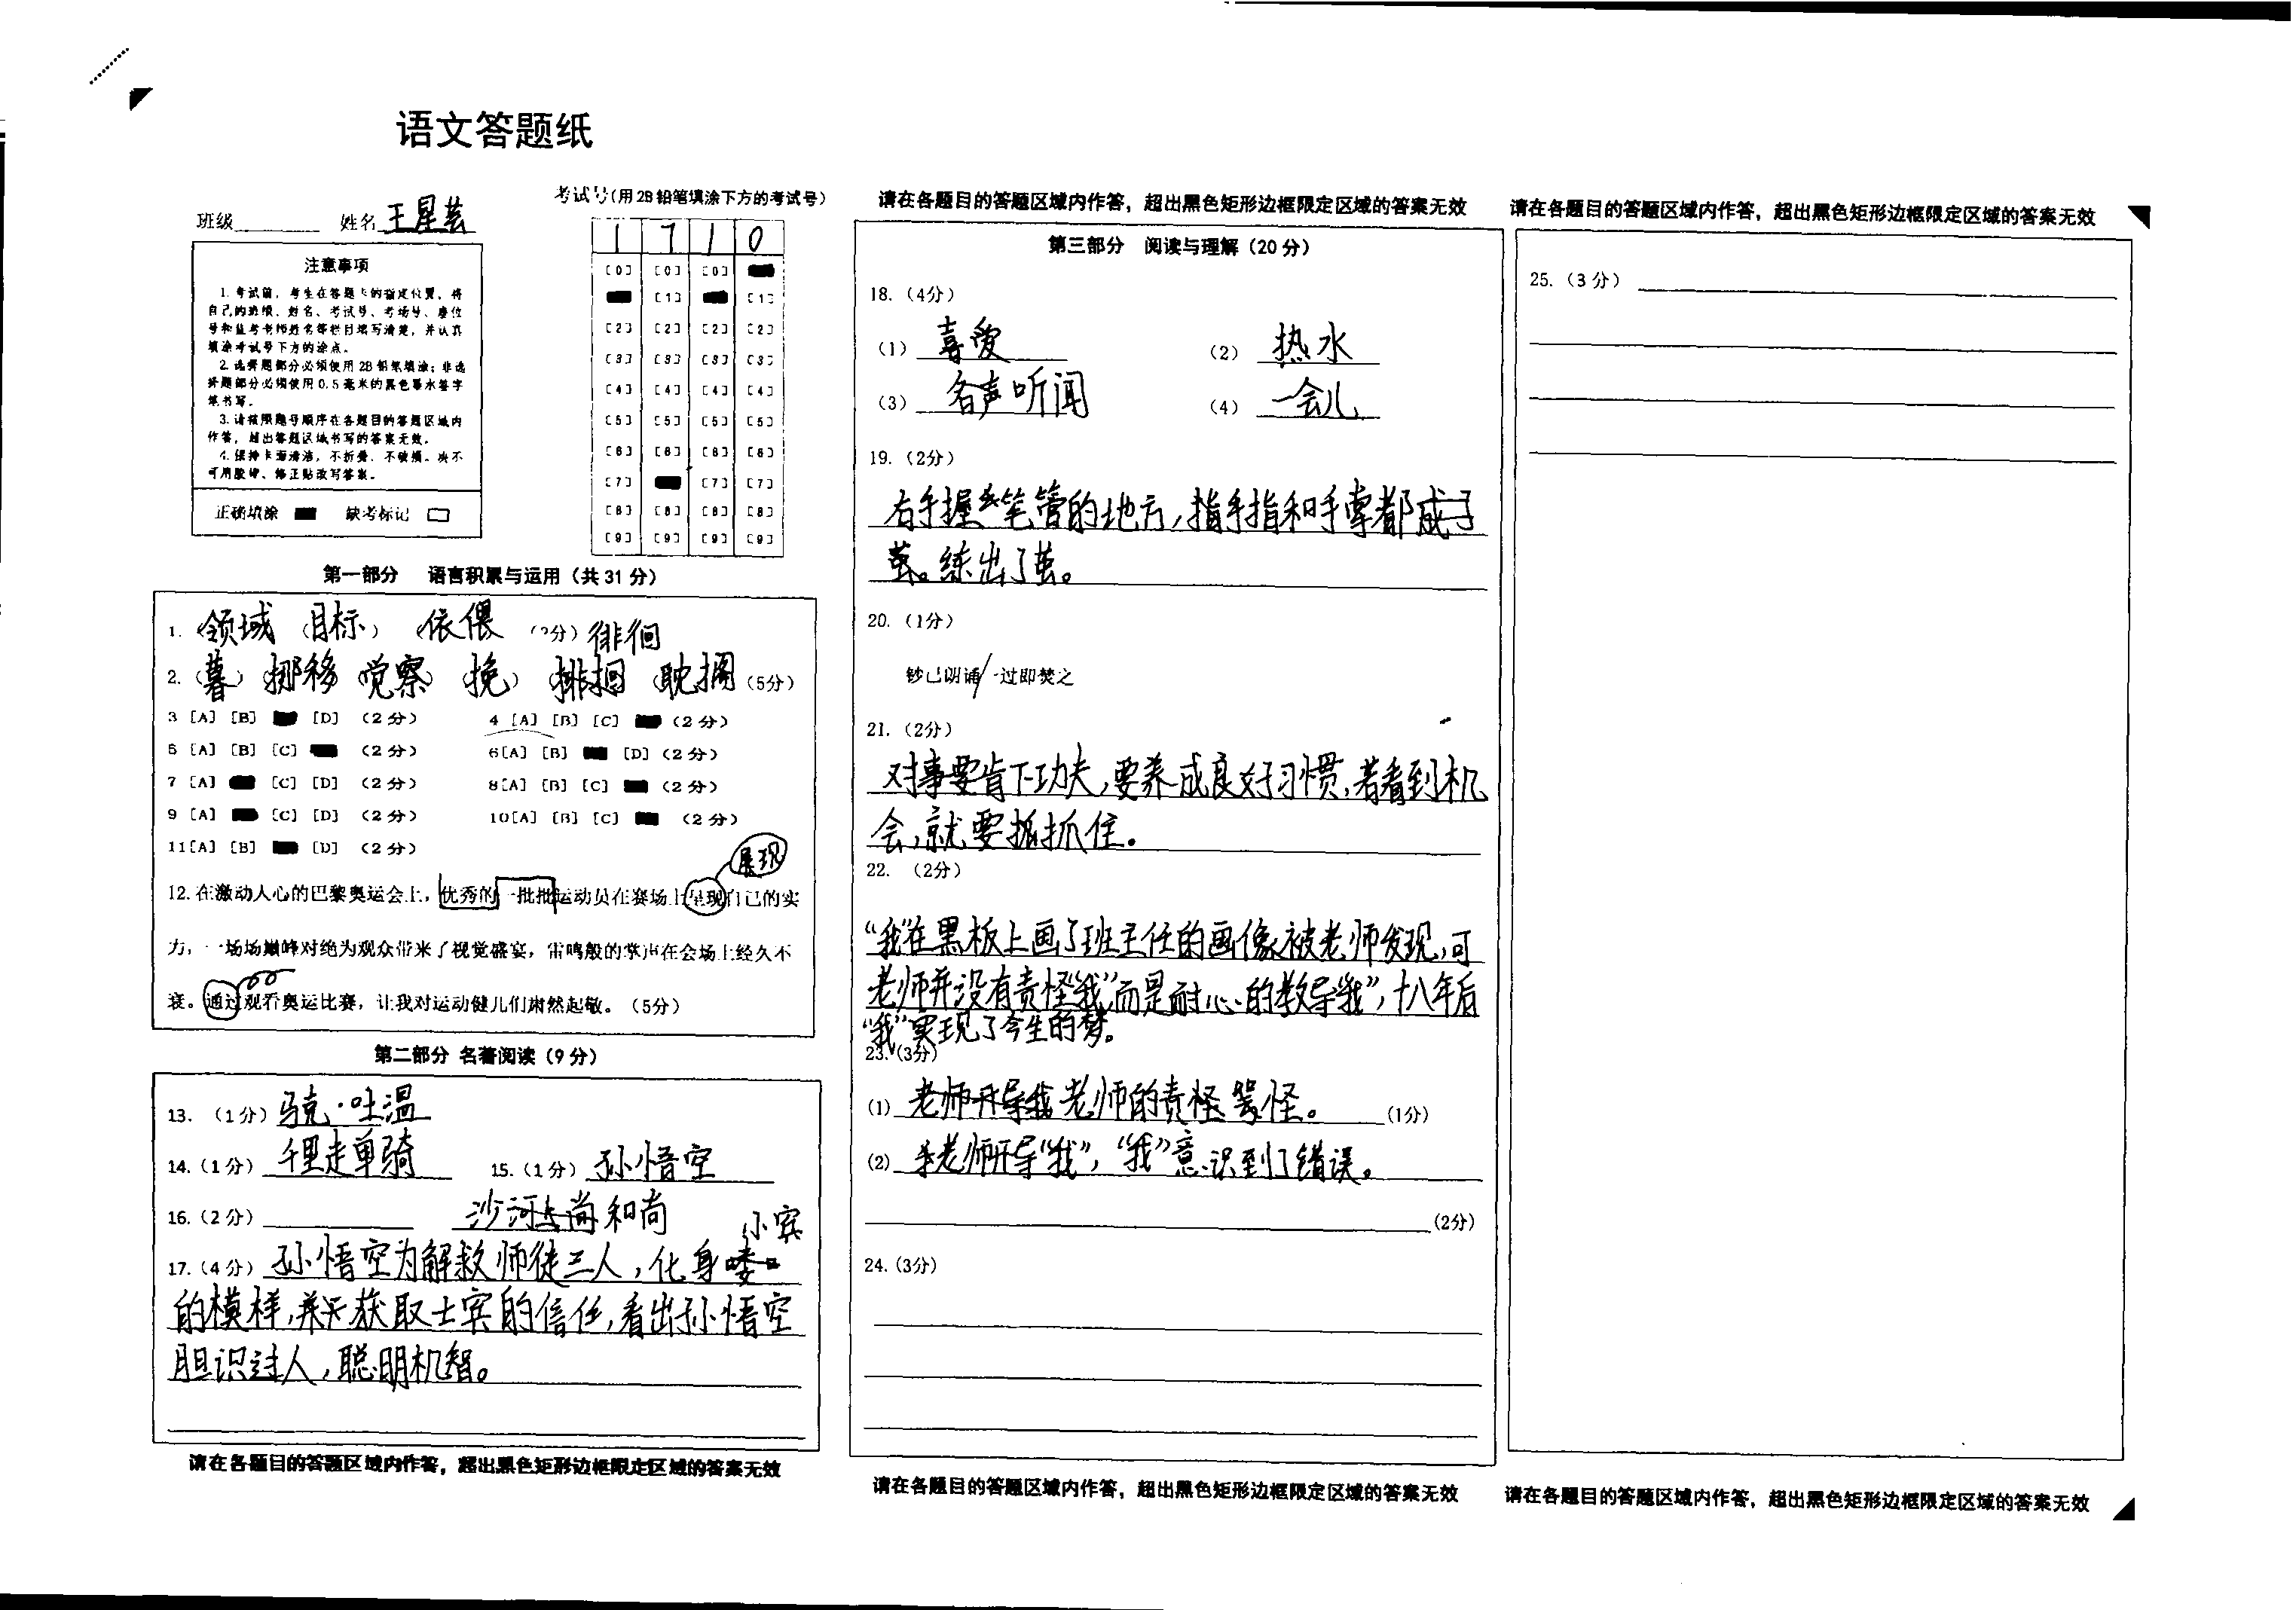 语文答题纸
班级 姓名 王星芸
考试号(用2B铅笔填涂下方的考试号)
1 7 1 0
[0] [0] [0]
[1] [1]
[2] [2] [2] [2]
[3] [3] [3] [3]
[4] [4] [4] [4]
[5] [5] [5] [5]
[6] [6] [6] [6]
[7] [7] [7]
[8] [8] [8] [8]
[9] [9] [9] [9]
注意事项
1.考试前,考生在答题卡的指定位置,将
自己的班级、姓名、考试号、考场号、座位
号和监考老师姓名等栏目填写清楚,并认真
填涂考试号下方的涂点。
2.选择题部分必须使用2B铅笔填涂;非选
择题部分必须使用0.5毫米的黑色墨水签字
笔书写。
3.请按照题号顺序在各题目的答题区域内
作答,超出答题区域书写的答案无效。
4.保持卡面清洁,不折叠、不破损。决不
可用胶带、修正贴改写答案。
正确填涂 缺考标记
第一部分 语言积累与运用(共31分)
1. 领域 (目标) 依偎 (2分) 徘徊
2. (暮) 挪移 觉察 (挽) 徘徊 耽搁 (5分)
3 [A] [B] [D] (2分) 4 [A] [B] [C] (2分)
5 [A] [B] [C] (2分) 6[A] [B] [D] (2分)
7 [A] [C] [D] (2分) 8[A] [B] [C] (2分)
9 [A] [C] [D] (2分) 10[A] [B] [C] (2分)
11[A] [B] [D] (2分)
展现
12.在激动人心的巴黎奥运会上,优秀的一批批运动员在赛场上呈现自己的实
力,一场场巅峰对绝为观众带来了视觉盛宴,雷鸣般的掌声在会场上经久不
衰。通过观看奥运比赛,让我对运动健儿们肃然起敬。(5分)
第二部分 名著阅读(9分)
13. (1分) 骆克·吐温
14. (1分) 千里走单骑 15. (1分) 孙悟空
16. (2分) 沙河 和尚
小宾
17. (4分) 孙悟空为解救师徒三人,化身
的模样,获取士宾的信任,看出孙悟空
胆识过人,聪明机智。
请在各题目的答题区域内作答,超出黑色矩形边框限定区域的答案无效
请在各题目的答题区域内作答,超出黑色矩形边框限定区域的答案无效
第三部分 阅读与理解(20分)
18. (4分)
(1) 喜爱 (2) 热水
(3) 各声听闻 (4) 一会儿
19. (2分)
右手握笔管的地方,指手指和手掌都成了
茧。练出了茧。
20. (1分)
钞已朗诵/一过即焚之
21. (2分)
对事要肯下功夫,要养成良好习惯,若看到机
会,就要抓住。
22. (2分)
“我”在黑板上画了班主任的画像被老师发现,可
老师并没有责怪“我”而是耐心的教导“我”,十八年后
“我”实现了今生的梦。
23. (3分)
(1) 老师开导我 老师的责怪 骂怪。 (1分)
(2) 老师开导“我”,“我”意识到了错误。
(2分)
24. (3分)
请在各题目的答题区域内作答,超出黑色矩形边框限定区域的答案无效
请在各题目的答题区域内作答,超出黑色矩形边框限定区域的答案无效
25. (3分)
请在各题目的答题区域内作答,超出黑色矩形边框限定区域的答案无效